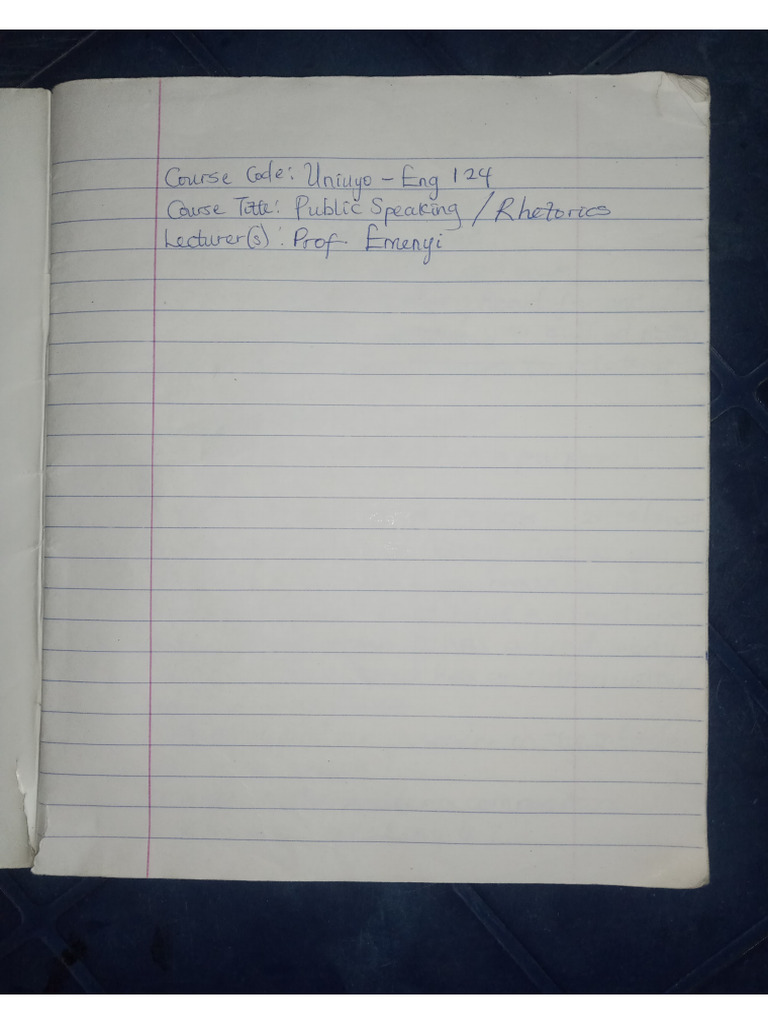 Course Code: Uniuyo - Eng 124
Course Title: Public Speaking / Rhetorics
Lecturer(s): Prof. Emenyi